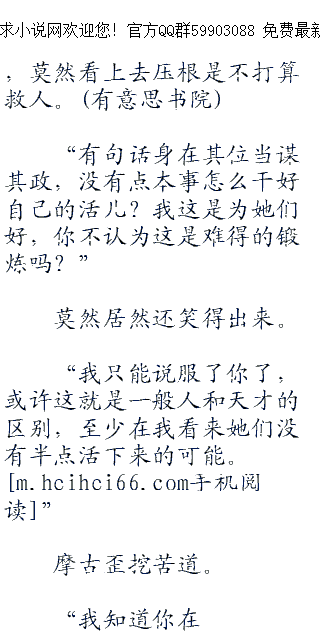 求小说网欢迎您！官方QQ群59903088 免费最新
，莫然看上去压根是不打算
救人。(有意思书院)
“有句话身在其位当谋
其政，没有点本事怎么干好
自己的活儿？我这是为她们
好，你不认为这是难得的锻
炼吗？”
莫然居然还笑得出来。
“我只能说服了你了，
或许这就是一般人和天才的
区别，至少在我看来她们没
有半点活下来的可能。
[m.hcihci66.com手机阅
读]”
摩古歪挖苦道。
“我知道你在